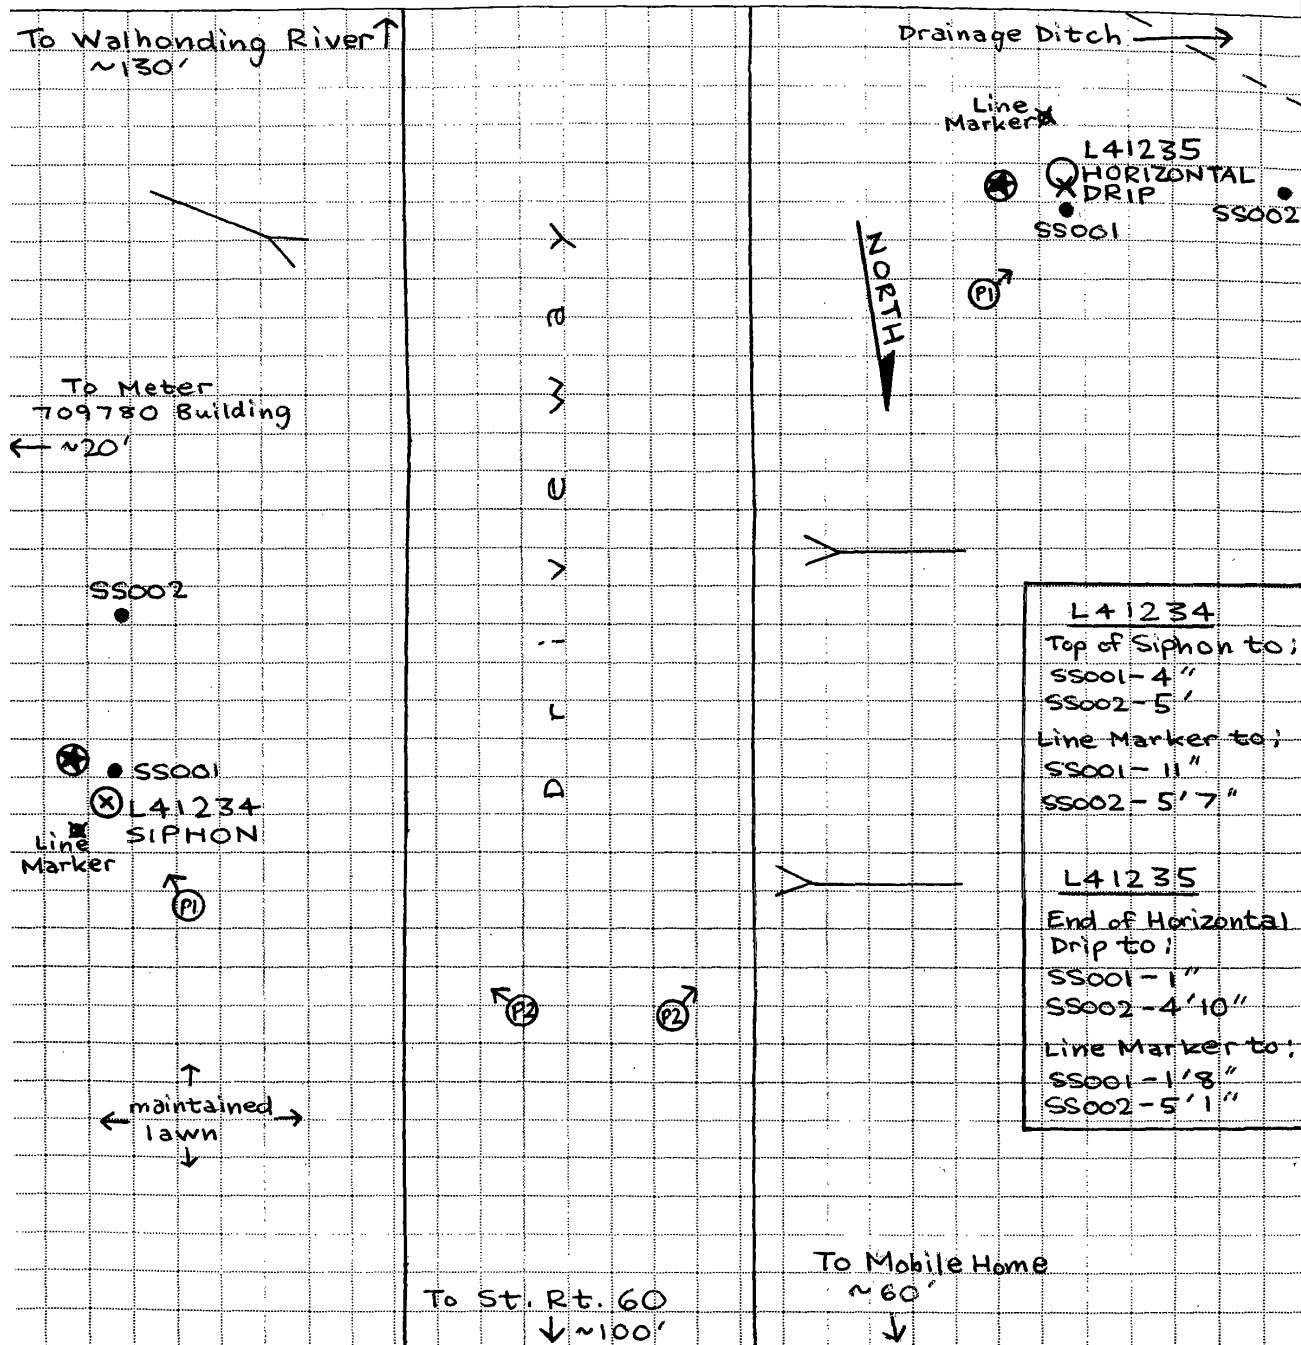 To Walhonding River
~130'
Drainage Ditch
Line
Marker
L41235
HORIZONTAL
DRIP
SS001
SS002
P1
NORTH
To Meter
709780 Building
~20'
Driveway
SS002
SS001
L41234
SIPHON
Line
Marker
P1
P2
P2
maintained
lawn
L41234
Top of Siphon to:
SS001-4"
SS002-5'
Line Marker to:
SS001-11"
SS002-5'7"
L41235
End of Horizontal
Drip to:
SS001-1"
SS002-4'10"
Line Marker to:
SS001-1'8"
SS002-5'1"
To Mobile Home
~60'
To St. Rt. 60
~100'